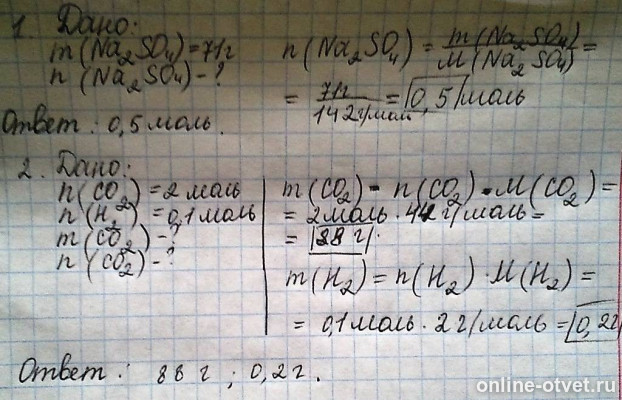 1. Дано:
m(Na2SO4)=71г
n(Na2SO4)-?
n(Na2SO4) = m(Na2SO4)/M(Na2SO4) =
= 71г/142г/моль = 0,5 моль
Ответ: 0,5 моль.
2. Дано:
n(CO2)=2 моль
n(H2)=0,1 моль
m(CO2)-?
n(CO2)-?
m(CO2) = n(CO2)·M(CO2) =
= 2 моль · 44 г/моль =
= 88 г.
m(H2) = n(H2)·M(H2) =
= 0,1 моль · 2 г/моль = 0,2г
Ответ: 88 г; 0,2 г.
online-otvet.ru